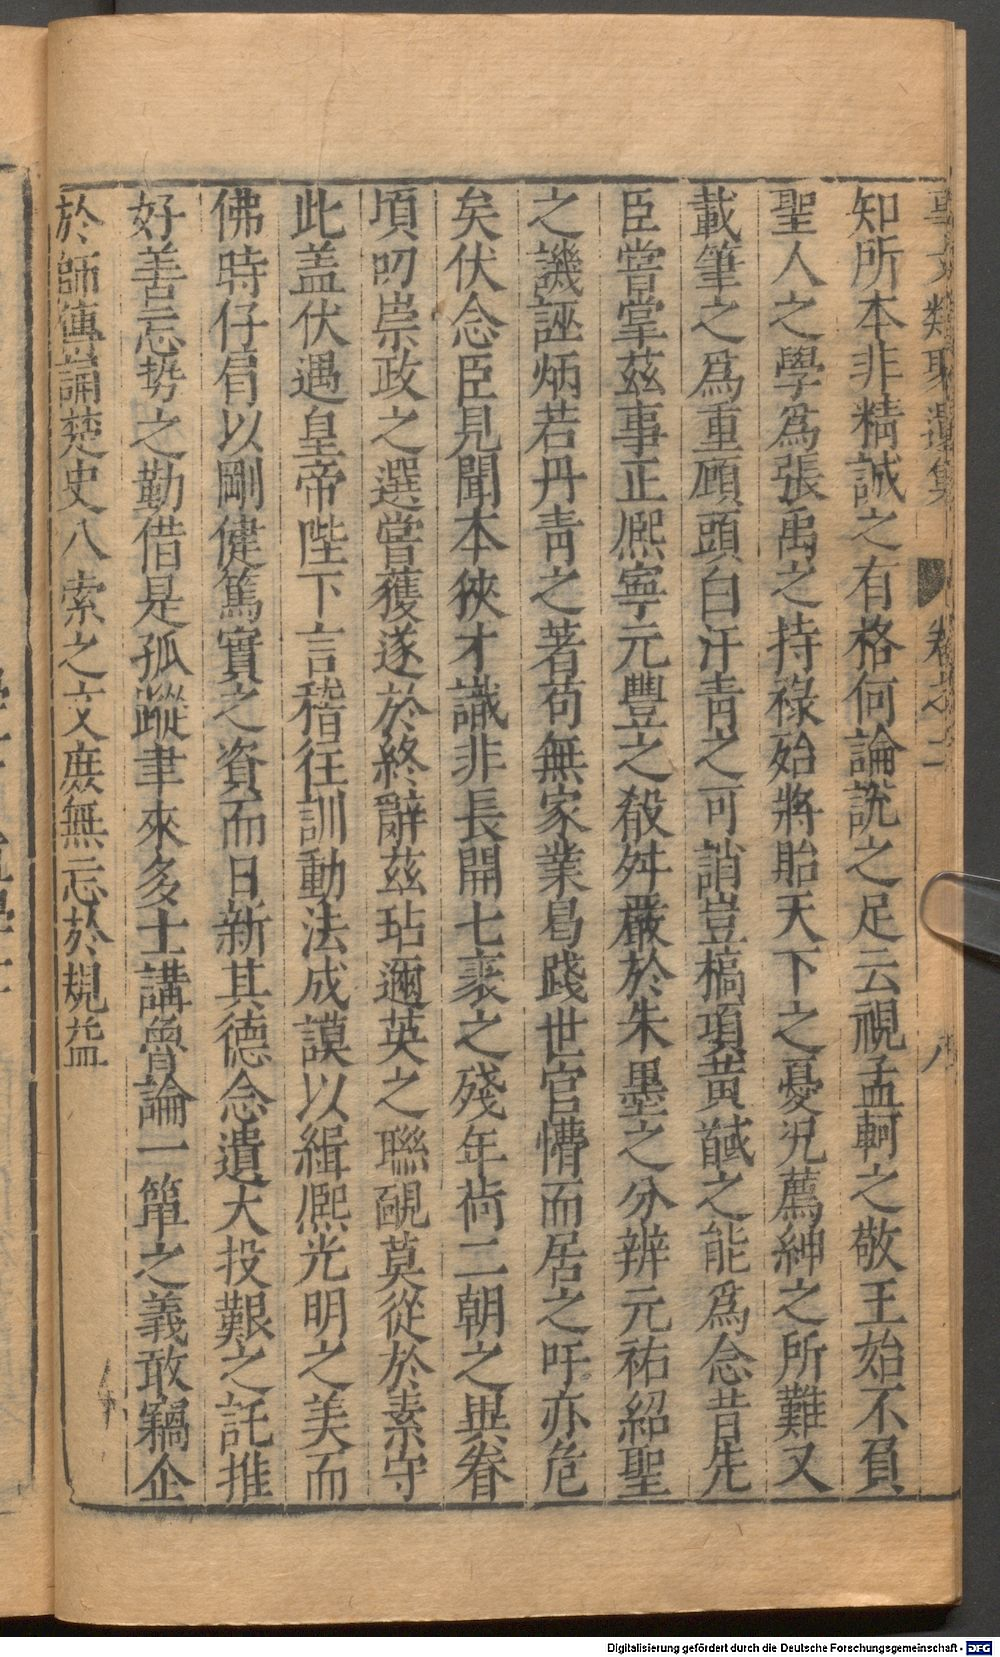 事文類聚遺集 卷之二 八
知所本非精誠之有格何論說之足云視孟軻之敬王始不負
聖人之學爲張禹之持祿殆將貽天下之憂況薦紳之所難又
載筆之爲重顧頭白汗靑之可誚豈槁項黃馘之能爲念昔先
臣嘗掌茲事正熈寧元豐之殽舛嚴於朱墨之分辨元祐紹聖
之譏誣炳若丹靑之著苟無家業曷踐世官懵而居之吁亦危
矣伏念臣見聞本狹才識非長開七袠之殘年尙二朝之異眷
頃叨崇政之選嘗獲遂於終辭茲玷邇英之聯靦莫從於素守
此盖伏遇皇帝陛下言稽往訓動法成謨以緝熈光明之美而
佛時仔肩以剛健篤實之資而日新其德念遺大投艱之託推
好善忘势之勤借是孤蹤聿來多士講魯論一簞之義敢竊企
於師傳誦楚史八索之文庶無忘於規益
Digitalisierung gefördert durch die Deutsche Forschungsgemeinschaft - DFG